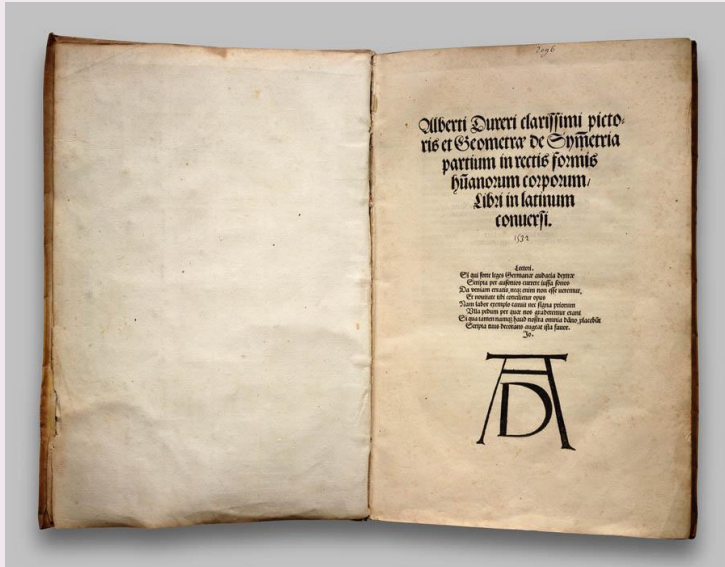 2096
Alberti Dureri clarissimi picto⸗
ris et Geometræ de Sym̃etria
partium in rectis formis
hũanorum corporum/
Libri in latinum
conuersi.
1532
Lectori.
Si qui forte leges Germanæ audatia dextræ
Scripta per ausonios currere iussa sonos
Da veniam erratis, neq; enim non esse veremur,
Et nouitate tibi concilietur opus
Nam labor exemplo caruit nec signa priorum
Vlla pedum per quæ nos graderemur erant
Si qua tamen namq; haud nostra omnia dãno placebũt
Scripta tuus decorans augeat ista fauor.
Jo.
AD